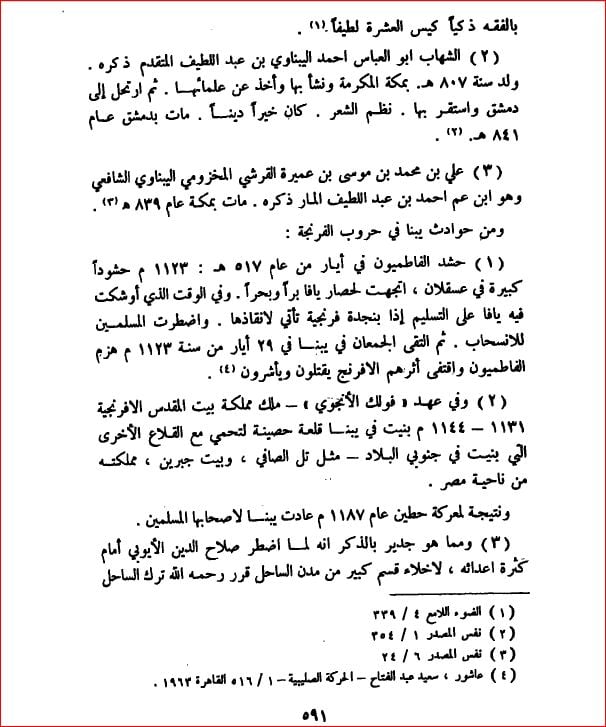 بالفقه ذكياً كيس العشرة لطيفاً (١) .
(٢) الشهاب ابو العباس احمد اليبناوي بن عبد اللطيف المتقدم ذكره .
ولد سنة ٨٠٧ هـ. بمكة المكرمة ونشأ بها وأخذ عن علمائها . ثم ارتحل إلى
دمشق واستقر بها . نظم الشعر . كان خيراً ديناً . مات بدمشق عام
٨٤١ هـ. (٢) .
(٣) علي بن محمد بن موسى بن عميرة القرشي المخزومي اليبناوي الشافعي
وهو ابن عم احمد بن عبد اللطيف المار ذكره . مات بمكة عام ٨٣٩ ه (٣) .
ومن حوادث يبنا في حروب الفرنجة :
(١) حشد الفاطميون في أيار من عام ٥١٧ هـ : ١١٢٣ م حشوداً
كبيرة في عسقلان ، اتجهت لحصار يافا براً وبحراً . وفي الوقت الذي أوشكت
فيه يافا على التسليم إذا بنجدة فرنجية تأتي لانقاذها . واضطرت المسلمين
للانسحاب . ثم التقى الجمعان في يبنا في ٢٩ أيار من سنة ١١٢٣ م هزم
الفاطميون واقتفى أثرهم الافرنج يقتلون ويأشرون (٤) .
(٢) وفي عهد « فولك الأنجوي » – ملك مملكة بيت المقدس الافرنجية
١١٣١ – ١١٤٤ م بنيت في يبنا قلعة حصينة لتحمي مع القلاع الأخرى
التي بنيت في جنوبي البلاد – مثل تل الصافي ، وبيت جبرين ، مملكته
من ناحية مصر .
ونتيجة لمعركة حطين عام ١١٨٧ م عادت يبنا لاصحابها المسلمين .
(٣) ومما هو جدير بالذكر انه لما اضطر صلاح الدين الأيوبي أمام
كثرة اعدائه ، لاخلاء قسم كبير من مدن الساحل قرر رحمه الله ترك الساحل
(١) الضوء اللامع ٤ / ٣٣٩
(٢) نفس المصدر ١ / ٣٥٤
(٣) نفس المصدر ٦ / ٢٤
(٤) عاشور ، سعيد عبد الفتاح – الحركة الصليبية – ١ / ٥١٦ القاهرة ١٩٦٣ .
٥٩١